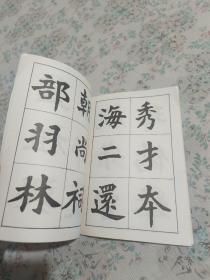 秀才本
海二還
朝尚
部羽林